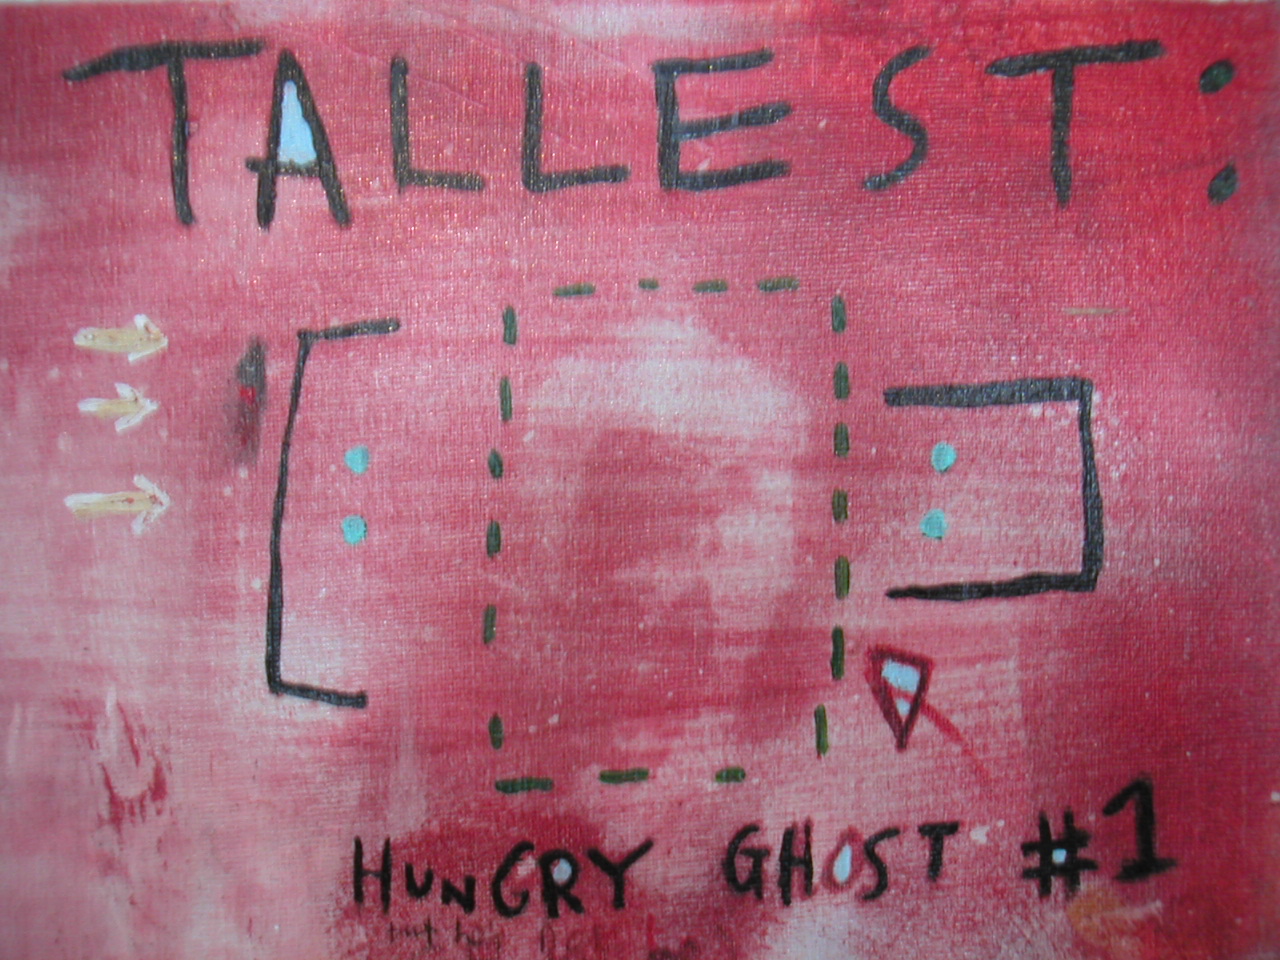 TALLEST:
HUNGRY GHOST #1